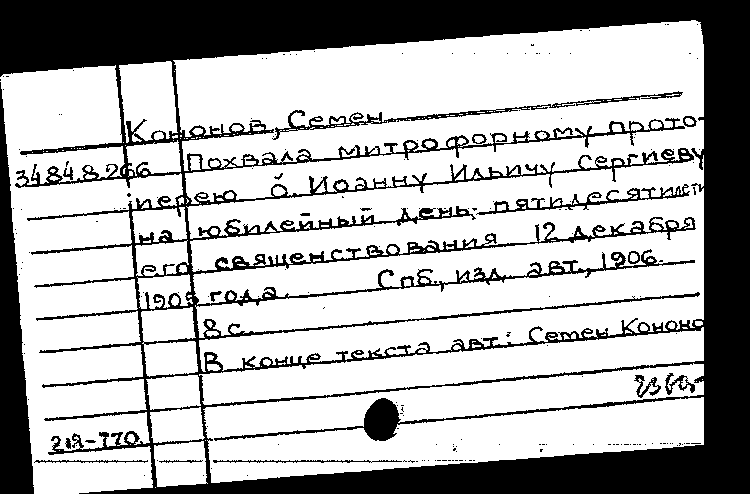 Кононов, Семен
34.84.8.266 Похвала митрофорному прото-
иерею о. Иоанну Ильичу Сергиеву
на юбилейный день пятидесятилетия
его священствования 12 декабря
1905 года. Спб., изд. авт., 1906.
8 с.
В конце текста авт.: Семен Кононо